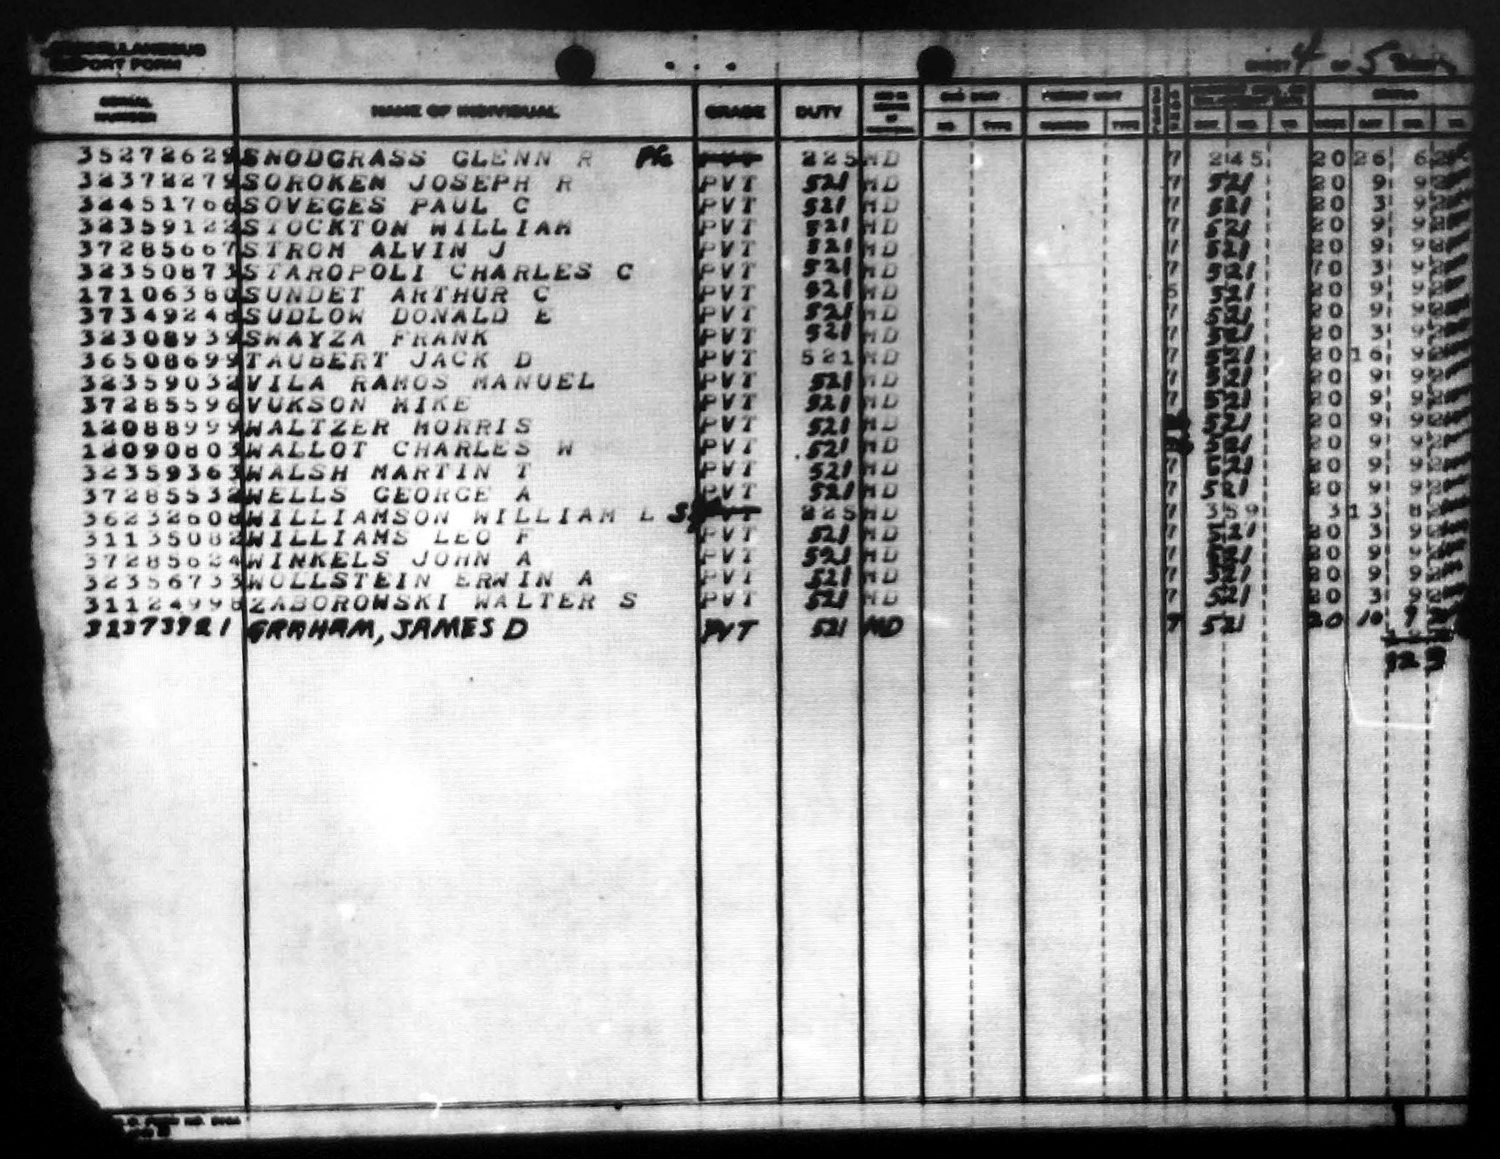 MISCELLANEOUS
REPORT FORM
SHEET 4 OF 5
SERIAL NUMBER NAME OF INDIVIDUAL GRADE DUTY
NO. TYPE NUMBER TYPE
35272629 SNODGRASS GLENN R Pfc PVT 225 MD 7 245 20 26 6 2
32372279 SOROKEN JOSEPH R PVT 521 MD 7 521 20 9 9 2
32451766 SOVEGES PAUL C PVT 521 MD 7 521 20 3 9 2
32359122 STOCKTON WILLIAM PVT 521 MD 7 521 20 9 9 2
37285667 STROM ALVIN J PVT 521 MD 7 521 20 9 9 2
32350873 STAROPOLI CHARLES C PVT 521 MD 7 521 70 3 9 2
17106380 SUNDET ARTHUR C PVT 521 MD 5 521 20 9 9 2
37349248 SUDLOW DONALD E PVT 521 MD 7 521 20 9 9 2
32308939 SWAYZA FRANK PVT 521 MD 7 521 20 3 9 2
36508699 TAUBERT JACK D PVT 521 MD 7 521 20 16 9 2
32359032 VILA RAMOS MANUEL PVT 521 MD 7 521 20 9 9 2
37285596 VUKSON MIKE PVT 521 MD 7 521 20 9 9 2
12088999 WALTZER MORRIS PVT 521 MD 521 20 9 9 2
12090803 WALLOT CHARLES W PVT 521 MD 521 20 9 9 2
32359363 WALSH MARTIN T PVT 521 MD 7 521 20 9 9 2
37285532 WELLS GEORGE A PVT 521 MD 7 521 20 9 9 2
36232608 WILLIAMSON WILLIAM L PVT 225 MD 7 359 3 13 8 2
31135082 WILLIAMS LEO F PVT 521 MD 7 521 20 3 9 2
37285624 WINKELS JOHN A PVT 521 MD 7 521 20 9 9 2
32356733 WOLLSTEIN ERWIN A PVT 521 MD 7 521 20 9 9 2
31124998 ZABOROWSKI WALTER S PVT 521 MD 7 521 20 3 9 2
32373921 GRAHAM, JAMES D PVT 521 MD 7 521 20 10 9 2